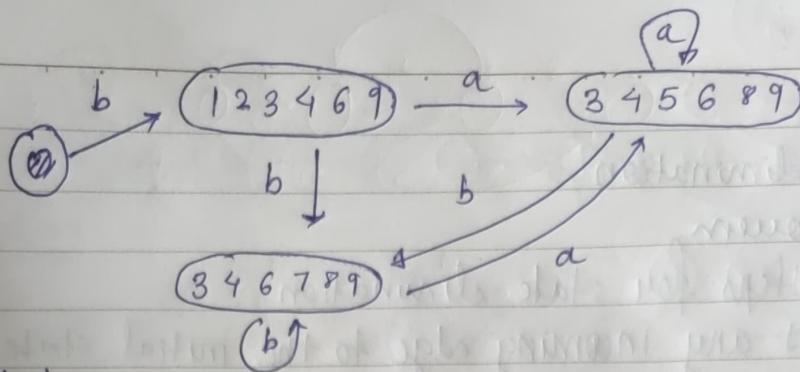 a
b
1 2 3 4 6 9
a
3 4 5 6 8 9
b
b
a
3 4 6 7 8 9
b